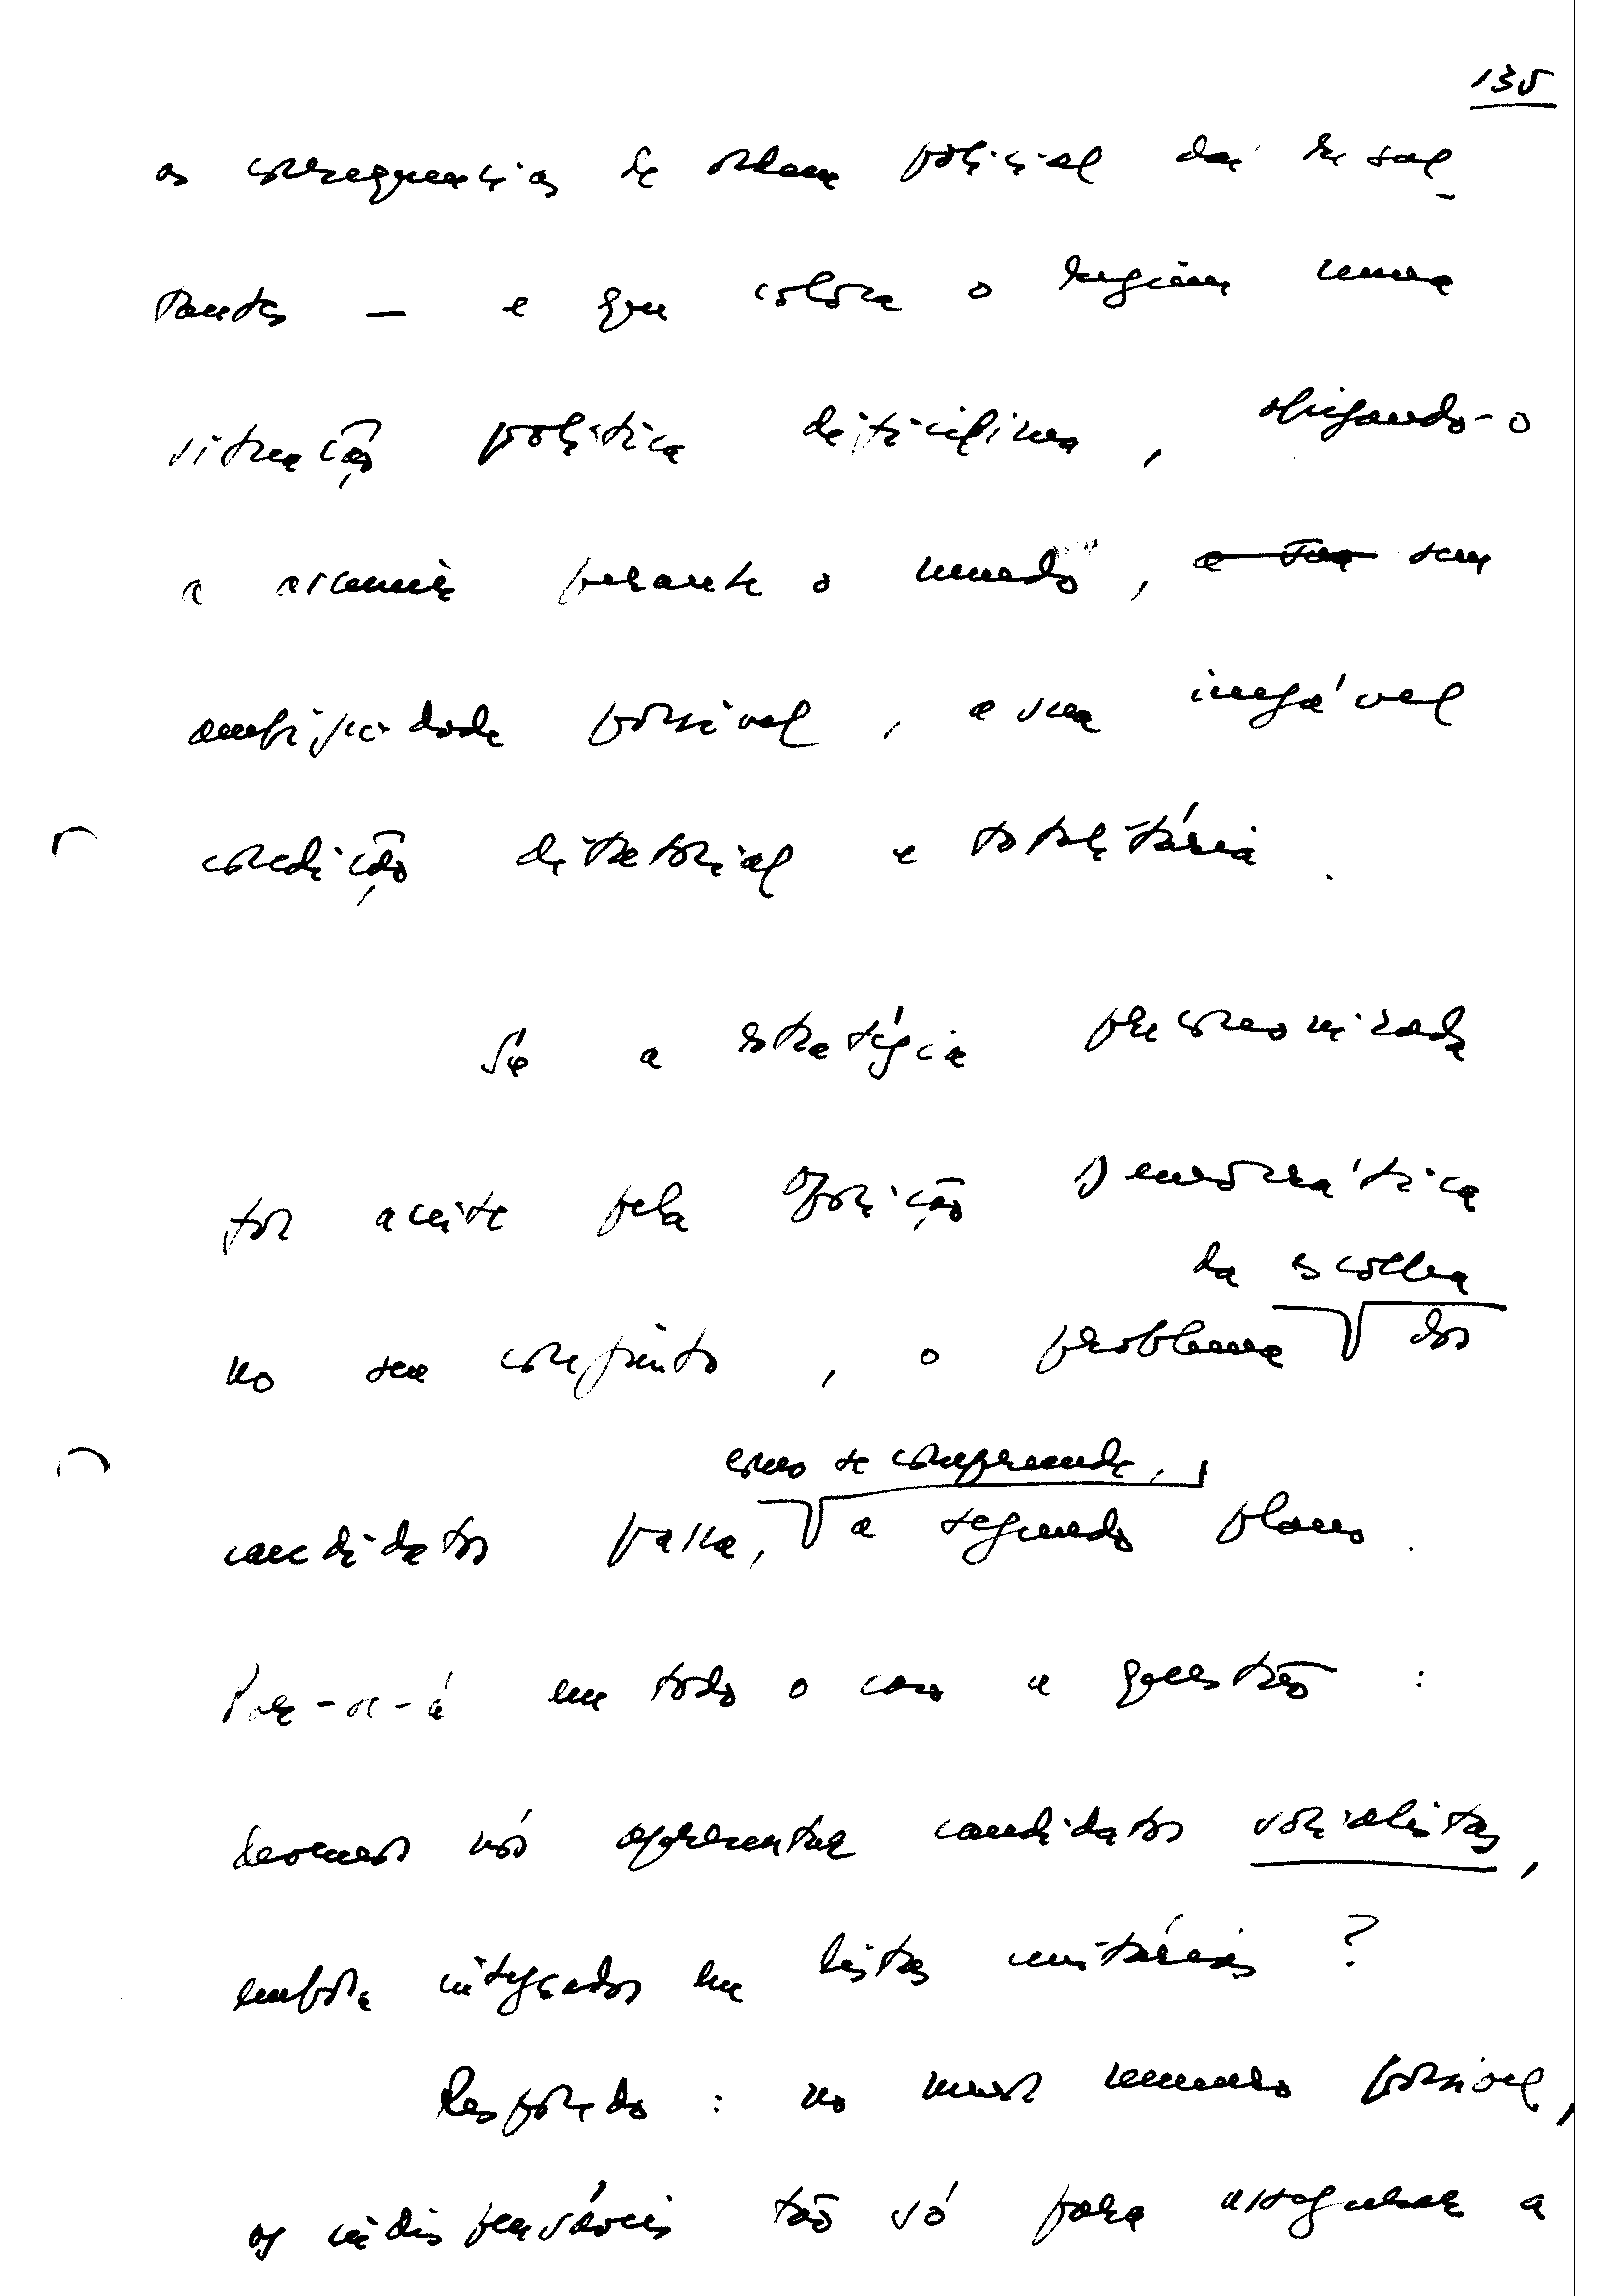 135
as consequencias de ordem policial daí resul-
tantes — e que coloca o regime numa
situação politica dificilima, obrigando-o
a assumir perante o mundo, a sua sem
ambiguidade possivel, a sua inegável
condição ditatorial e totalitária.
Se a estratégia preconizada
for aceite pela Oposição Democrática
da escolha
no seu conjunto, o problema dos
como se compreende,
candidatos passa, a segundo plano.
Por-se-á em todo o caso a questão:
devemos nós apresentar candidatos socialistas,
embora integrados em listas unitárias?
Respondo: no menor numero possivel,
os indispensáveis tão só para assegurar a